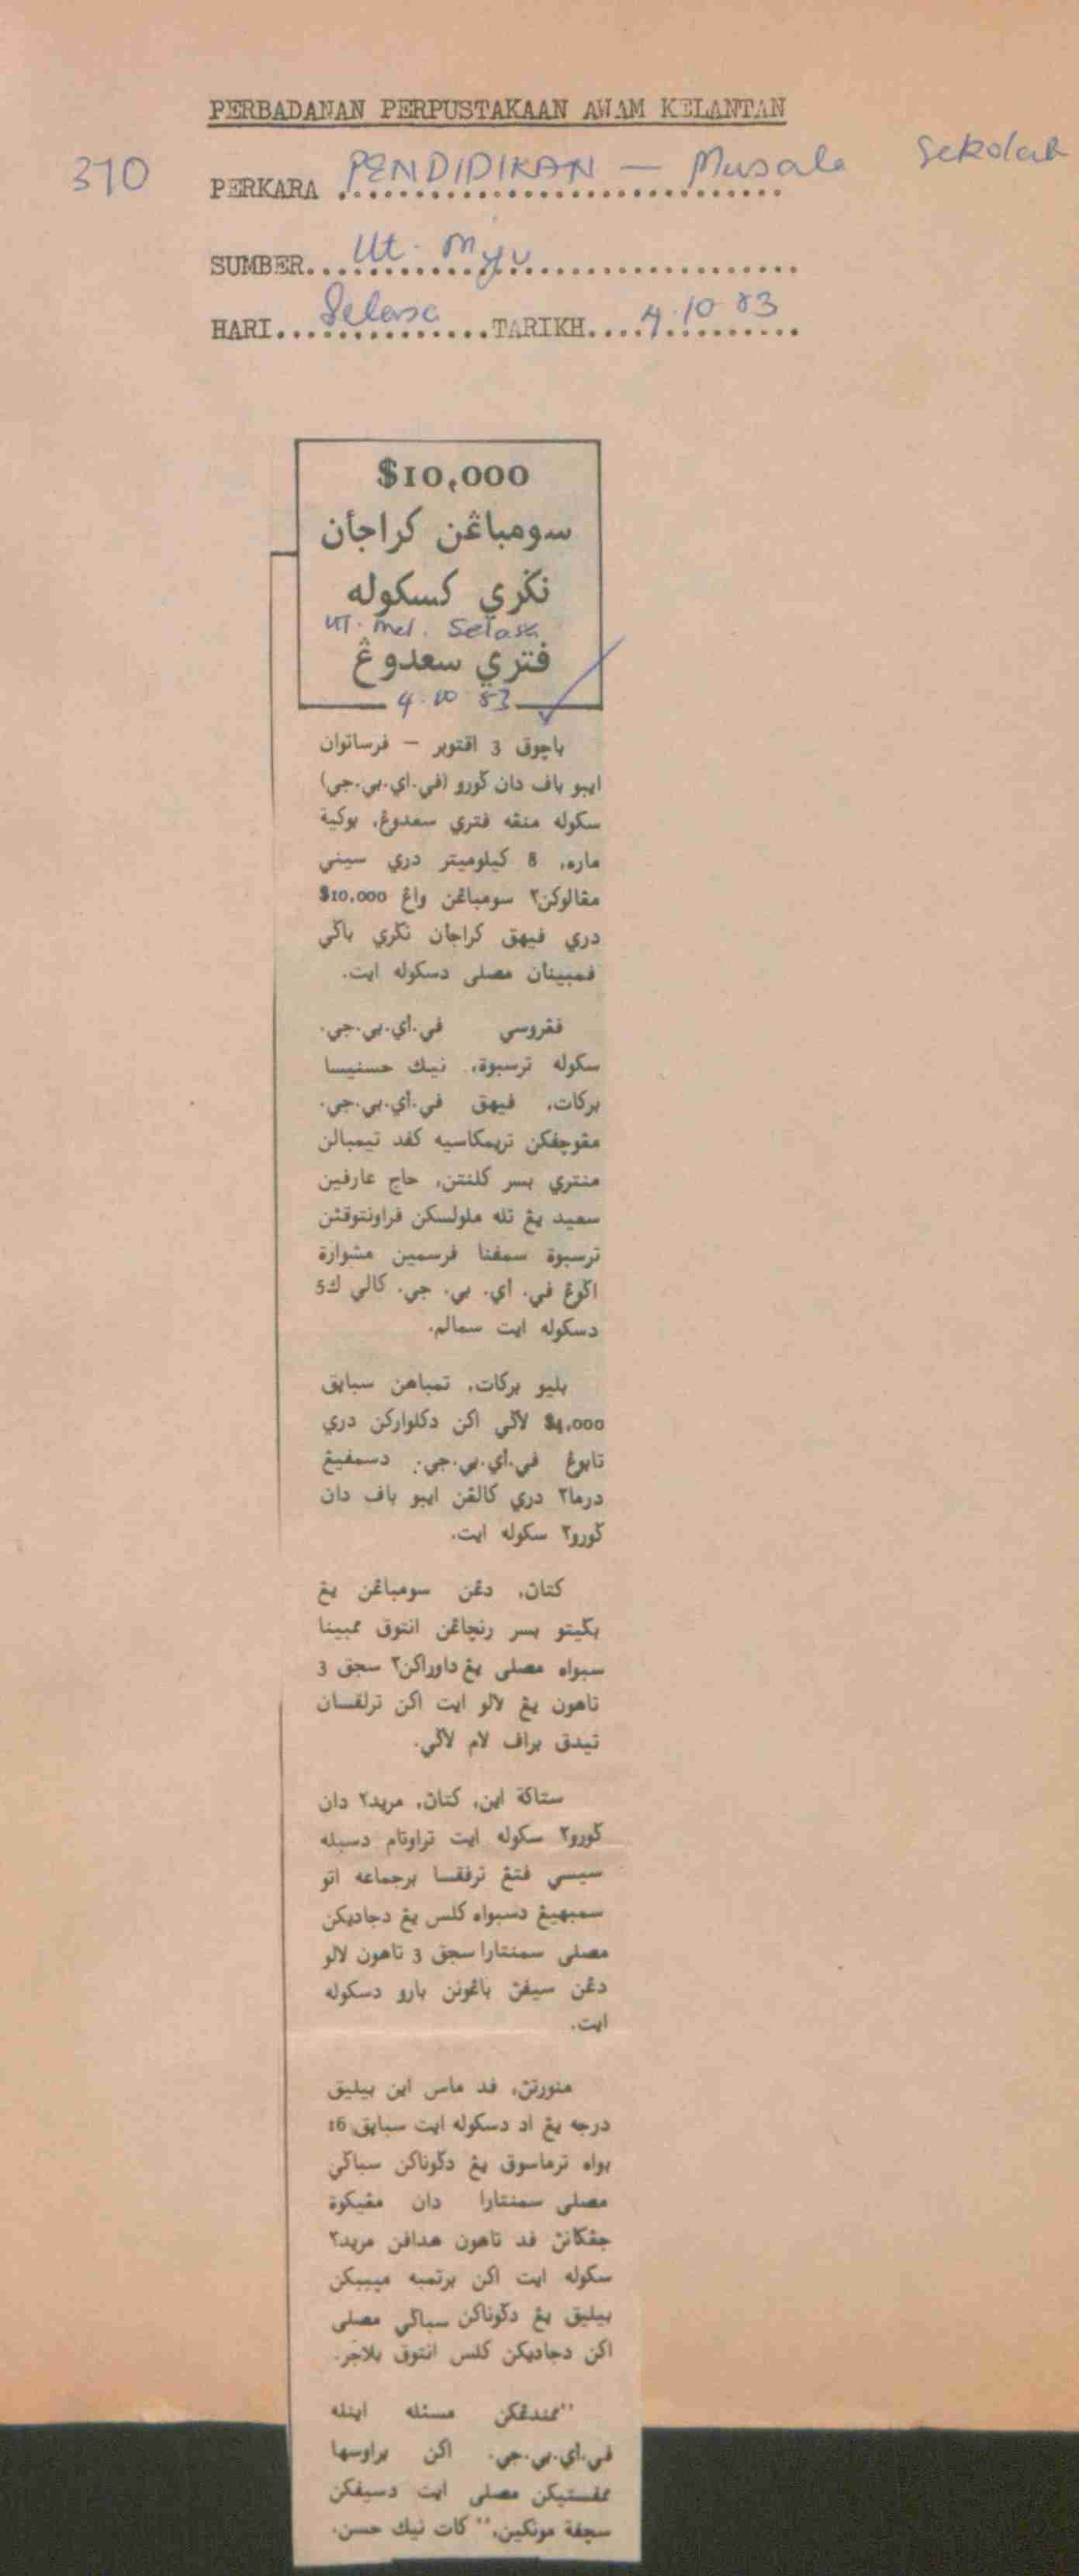 PERBADANAN PERPUSTAKAAN AWAM KELANTAN
370
PERKARA PENDIDIKAN — Musala Sekolah
SUMBER Ut. Myu
HARI Selasa TARIKH 4.10 83
$10,000
سومباڠن كراجأن
نݢري كسكوله
UT. Mel. Selasa
فتري سعدوڠ
4.10 83
باچوق 3 اقتوبر – فرساتوان
ايبو باف دان ݢورو (في.اي.بي.جي)
سكوله منڠه فتري سعدوڠ، بوكية
ماره، 8 كيلوميتر دري سيني
مڠالوكن٢ سومباڠن واڠ $10,000
دري فيهق كراجأن نݢري باݢي
فمبينأن مصلى دسكوله ايت.
فڠروسي في.اي.بي.جي.
سكوله ترسبوة، نيك حسنيسا
بركات، فيهق في.اي.بي.جي.
مڠوچفكن تريمكاسيه كفد تيمبالن
منتري بسر كلنتن، حاج عارفين
سعيد يڠ تله ملولسكن فراونتوقكن
ترسبوة سمفنا فرسمين مشوارة
اݢوڠ في. اي. بي. جي. كالي ك5
دسكوله ايت سمالم.
بليو بركات، تمباهن سباڽق
$4,000 لاݢي اكن دكلواركن دري
تابوڠ في.اي.بي.جي. دسمفيڠ
درما٢ دري كالڠن ايبو باف دان
ݢورو٢ سكوله ايت.
كتاڽ، دڠن سومباڠن يڠ
بݢيتو بسر رنچاڠن انتوق ممبينا
سبواه مصلى يڠ داوراكن٢ سجق 3
تاهون يڠ لالو ايت اكن ترلقسان
تيدق براف لام لاݢي.
ستاكة اين، كتاڽ، مريد٢ دان
ݢورو٢ سكوله ايت تراوتام دسبله
سيسي فتڠ ترفقسا برجماعه اتو
سمبهيڠ دسبواه كلس يڠ دجاديكن
مصلى سمنتارا سجق 3 تاهون لالو
دڠن سيفڽ باڠونن بارو دسكوله
ايت.
منورتڽ، فد ماس اين بيليق
درجه يڠ اد دسكوله ايت سباڽق 16
بواه ترماسوق يڠ دݢوناكن سباݢي
مصلى سمنتارا دان مڠيكوة
جڠكاڽ فد تاهون هدافن مريد٢
سكوله ايت اكن برتمبه ميببكن
بيليق يڠ دݢوناكن سباݢي مصلى
اكن دجاديكن كلس انتوق بلاجر.
"ممندڠكن مسئله اينله
في.اي.بي.جي. اكن براوسها
ممفستيكن مصلى ايت دسيفكن
سچفة مونكين،" كات نيك حسن.